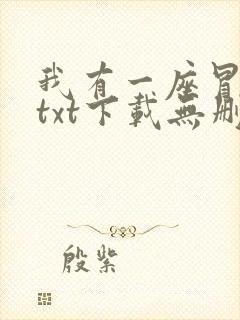 我有一座冒
txt下載無刪
殷紫